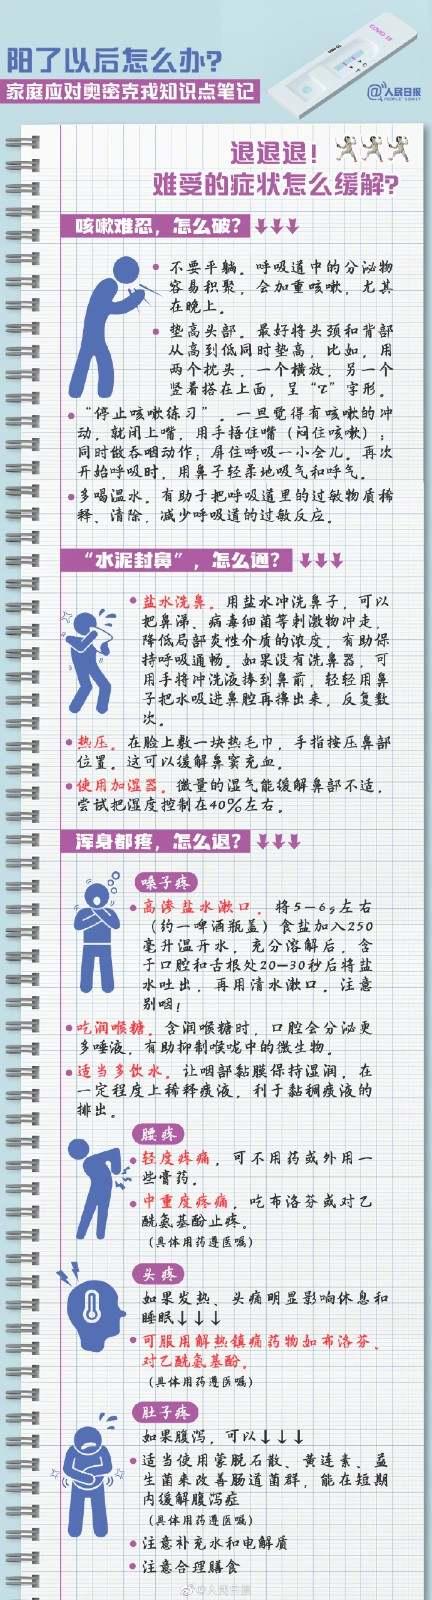 阳了以后怎么办?
家庭应对奥密克戎知识点笔记
COVID 19
@人民日报
PEOPLE'S DAILY
退退退!
难受的症状怎么缓解?
咳嗽难忍，怎么破?
不要平躺。呼吸道中的分泌物
容易积聚，会加重咳嗽，尤其
在晚上。
垫高头部。最好将头颈和背部
从高到低同时垫高，比如，用
两个枕头，一个横放，另一个
竖着搭在上面，呈“T”字形。
“停止咳嗽练习”。一旦觉得有咳嗽的冲
动，就闭上嘴，用手捂住嘴（闷住咳嗽）；
同时做吞咽动作；屏住呼吸一小会儿。再次
开始呼吸时，用鼻子轻柔地吸气和呼气。
多喝温水。有助于把呼吸道里的过敏物质稀
释、清除，减少呼吸道的过敏反应。
“水泥封鼻”，怎么通?
盐水洗鼻。用盐水冲洗鼻子，可以
把鼻涕、病毒细菌等刺激物冲走，
降低局部炎性介质的浓度，有助保
持呼吸通畅。如果没有洗鼻器，可
用手将冲洗液捧到鼻前，轻轻用鼻
子把水吸进鼻腔再擤出来，反复数
次。
热压。在脸上敷一块热毛巾，手指按压鼻部
位置。这可以缓解鼻窦充血。
使用加湿器。微量的湿气能缓解鼻部不适，
尝试把湿度控制在40%左右。
浑身都疼，怎么退?
嗓子疼
高渗盐水漱口。将5—6g左右
（约一啤酒瓶盖）食盐加入250
毫升温开水，充分溶解后，含
于口腔和舌根处20—30秒后将盐
水吐出，再用清水漱口。注意
别咽!
吃润喉糖。含润喉糖时，口腔会分泌更
多唾液，有助抑制喉咙中的微生物。
适当多饮水。让咽部黏膜保持湿润，在
一定程度上稀释痰液，利于黏稠痰液的
排出。
腰疼
轻度疼痛，可不用药或外用一
些膏药。
中重度疼痛，吃布洛芬或对乙
酰氨基酚止疼。
（具体用药遵医嘱）
头疼
如果发热、头痛明显影响休息和
睡眠↓↓↓
可服用解热镇痛药物如布洛芬、
对乙酰氨基酚。
（具体用药遵医嘱）
肚子疼
如果腹泻，可以↓↓↓
适当使用蒙脱石散、黄连素、益
生菌来改善肠道菌群，能在短期
内缓解腹泻症
（具体用药遵医嘱）
注意补充水和电解质
注意合理膳食
@人民日报